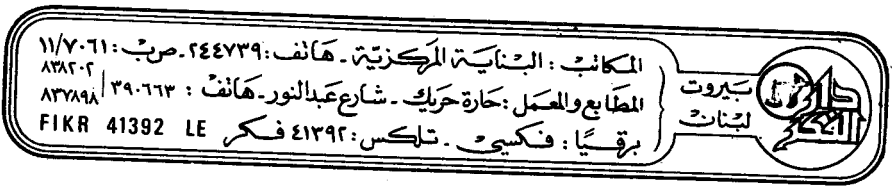 دار الفكر
بيروت
لبنان
المكاتب : البناية المركزية - هاتف : ٢٤٤٧٣٩ - ص ب : ١١/٧٠٦١
المطابع والمعمل : حارة حريك - شارع عبدالنور - هاتف : ٣٩٠٦٦٣ / ٨٣٨٢٠٢
٨٣٧٨٩٨
برقيًا : فكسي - تلكس : ٤١٣٩٢ فكر FIKR 41392 LE